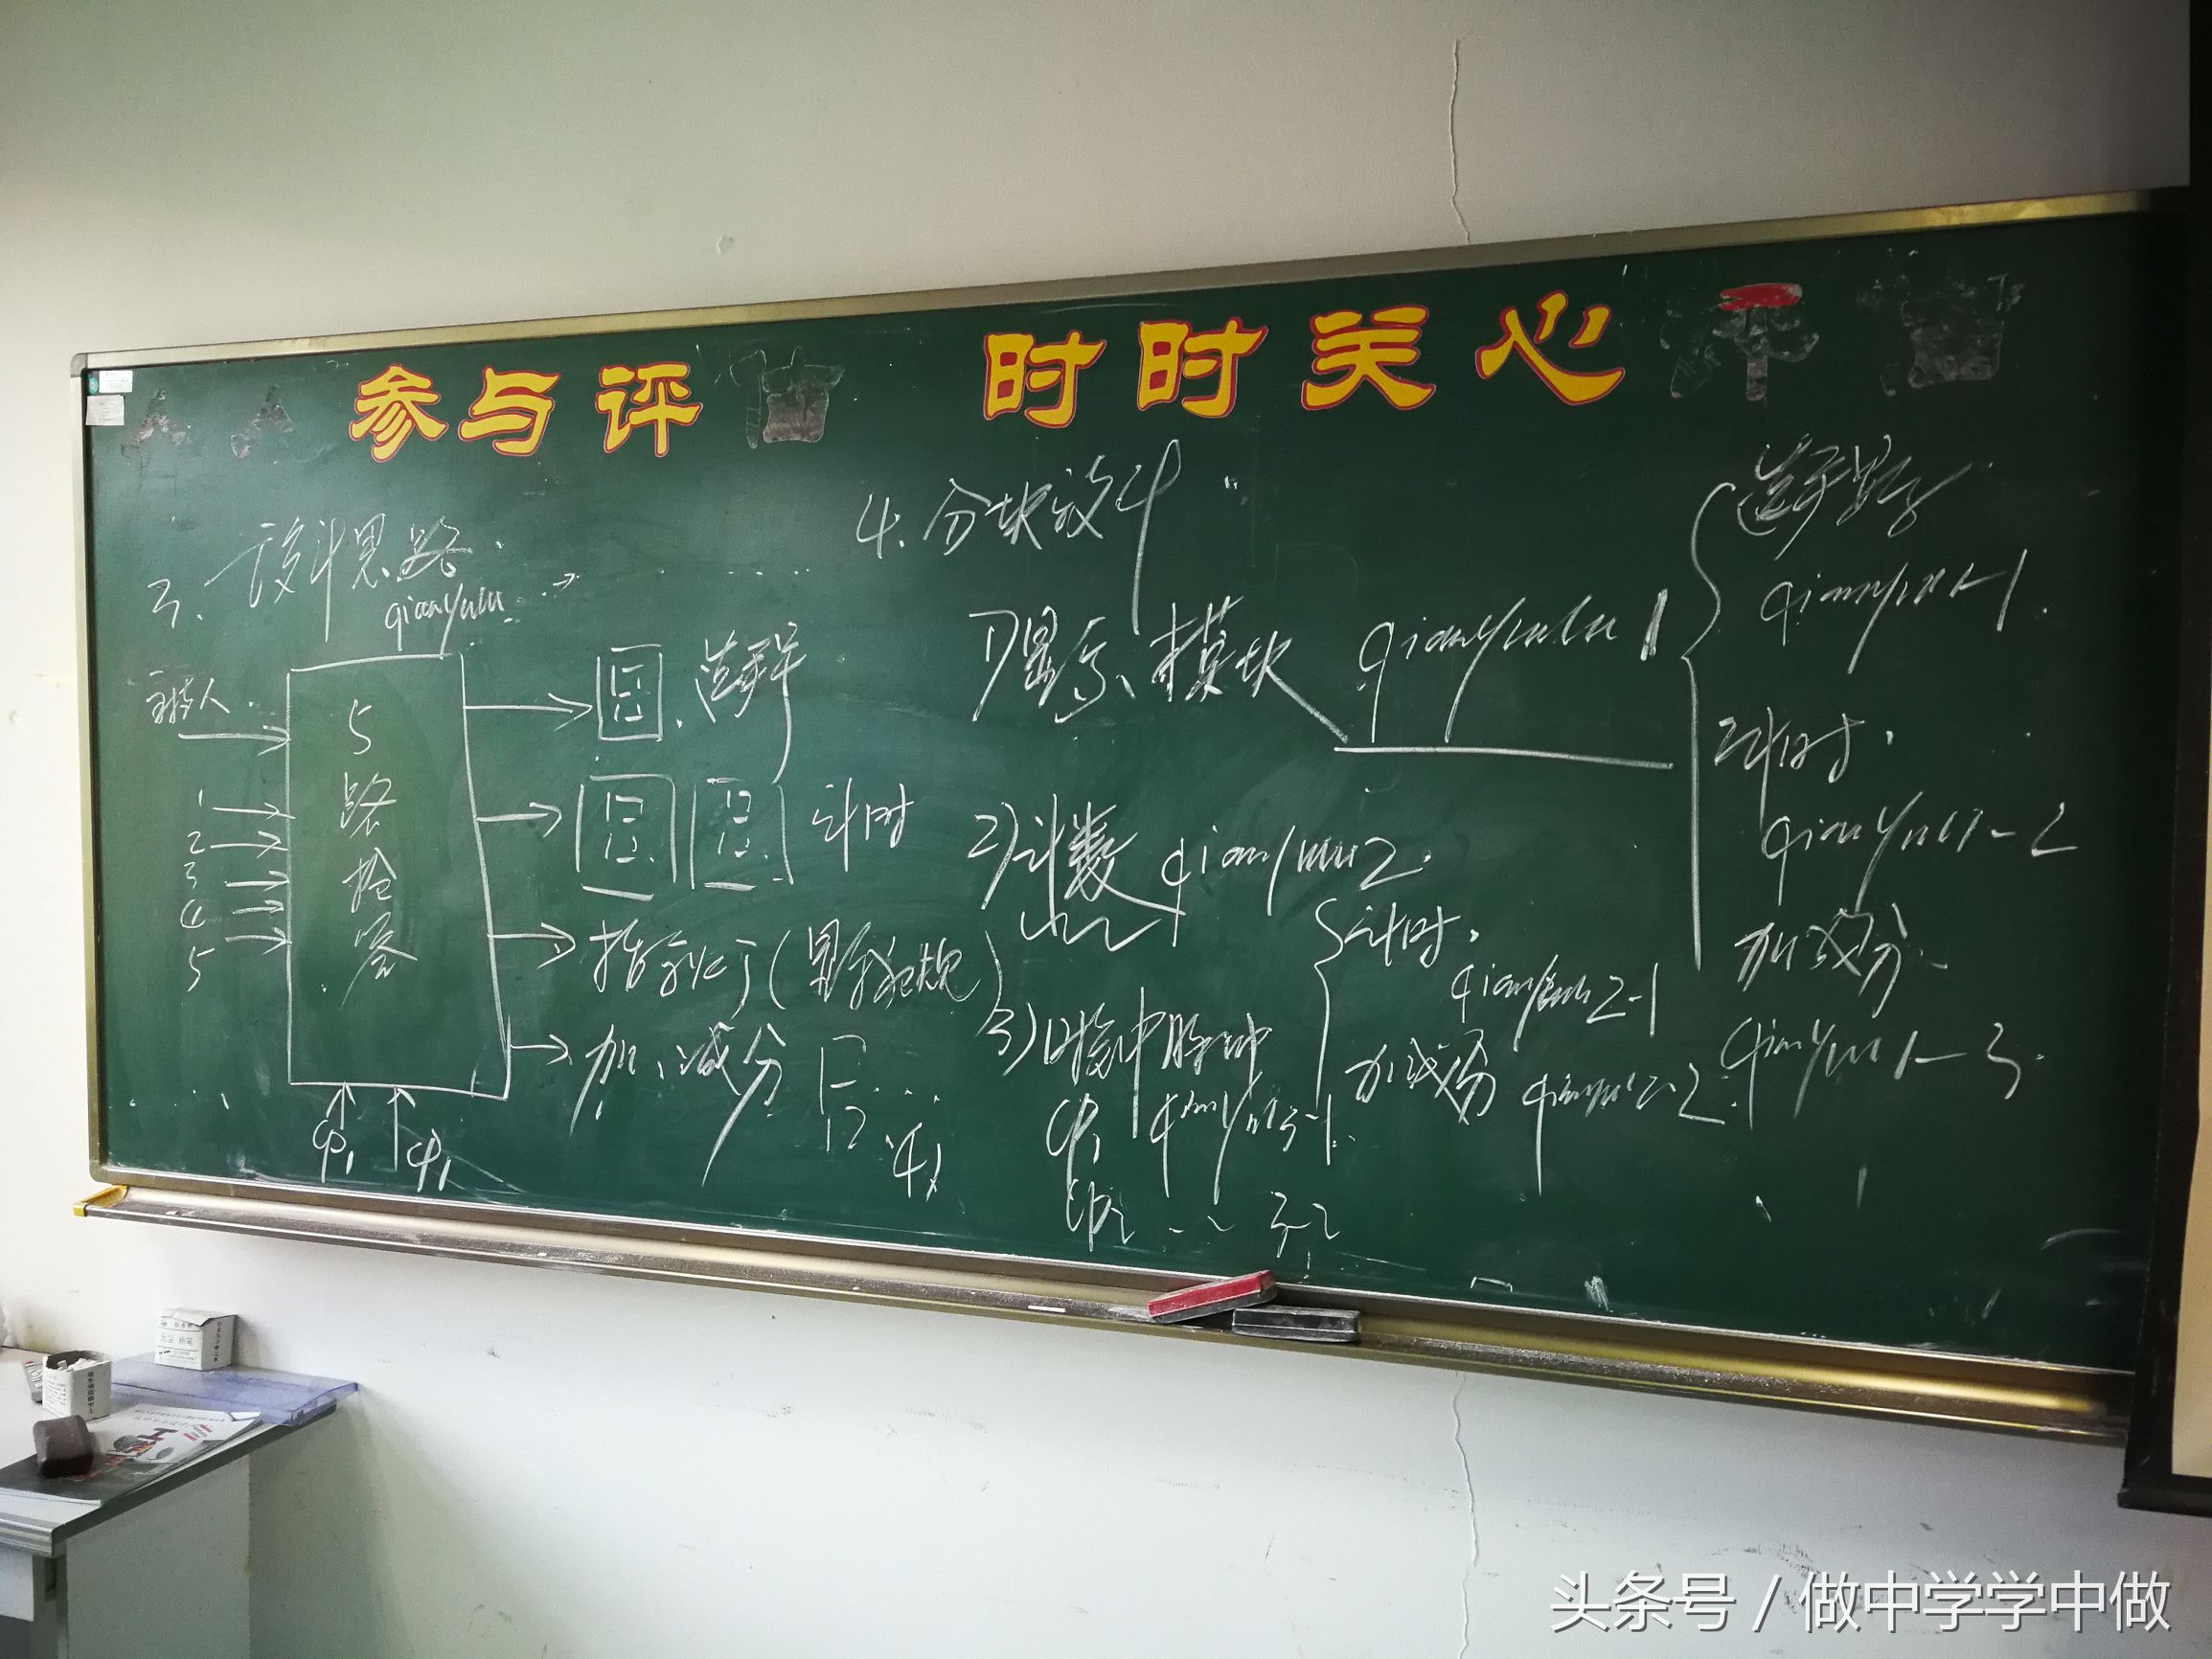 参与评
时时关心
三、设计思路
qianyulu
主持人
1
2
3
4
5
5
路
抢
答
选手
计时
指示灯
加、减分
CP1
CP1
4、分块设计
1)显示模块 qianyulu1
选手显示
qianyulu1-1
计时
qianyulu1-2
加减分
qianyulu1-3
2)计数 qianyulu2
计时
qianyulu2-1
加减分 qianyulu2-2
3)时钟脉冲
CP1 qianyulu3-1
CP2 3-2
头条号 / 做中学学中做